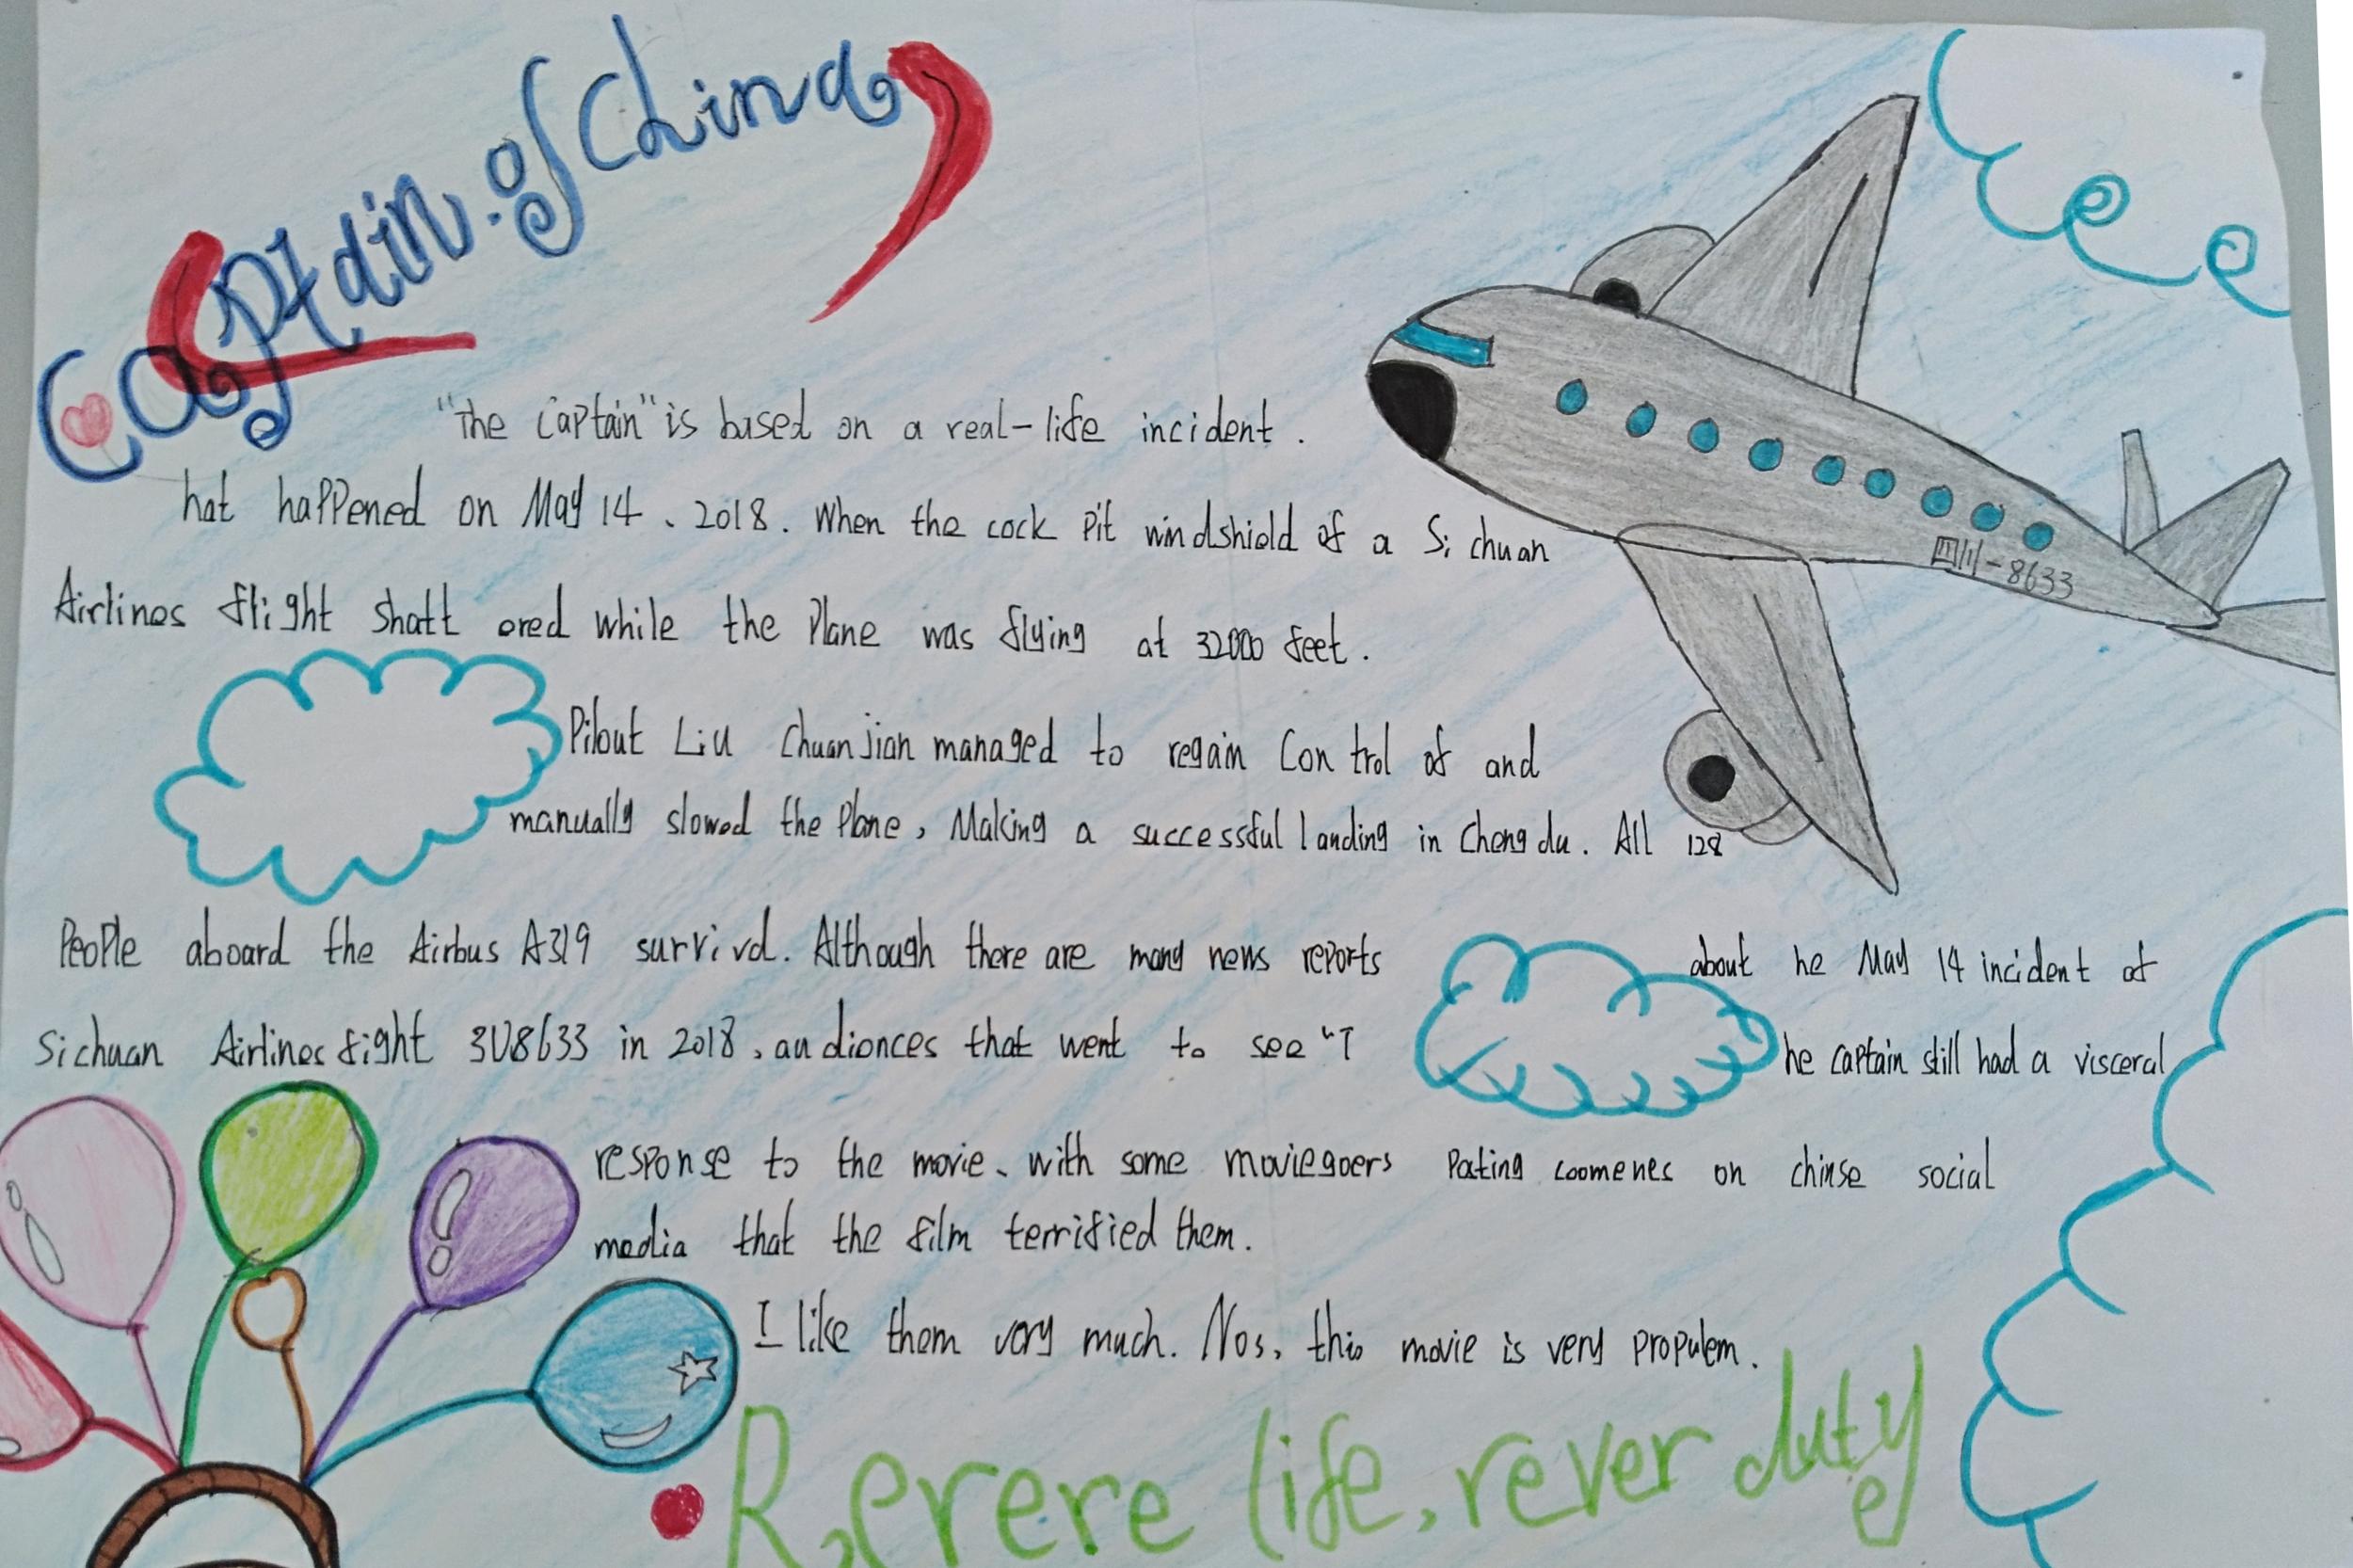 Captain of China
"The Captain" is based on a real-life incident.
hat happened on May 14、2018. When the cock pit windshield of a Si chuan
Airlines flight shatt ered while the Plane was flying at 32000 feet.
四川-8633
Pilout Liu Chuanjian managed to regain Con trol of and
manually slowed the Plane, Making a successful landing in Cheng du. All 128
People aboard the Airbus A319 survivd. Although there are many news reports about he May 14 incident of
Sichuan Airlines fight 3U8633 in 2018, au diences that went to see "T he captain still had a visceral
response to the movie、with some moviegoers Posting coomenes on chinse social
media that the film terrified them.
I like them very much. Nos, this movie is very propulem.
Reverere life, rever duty e